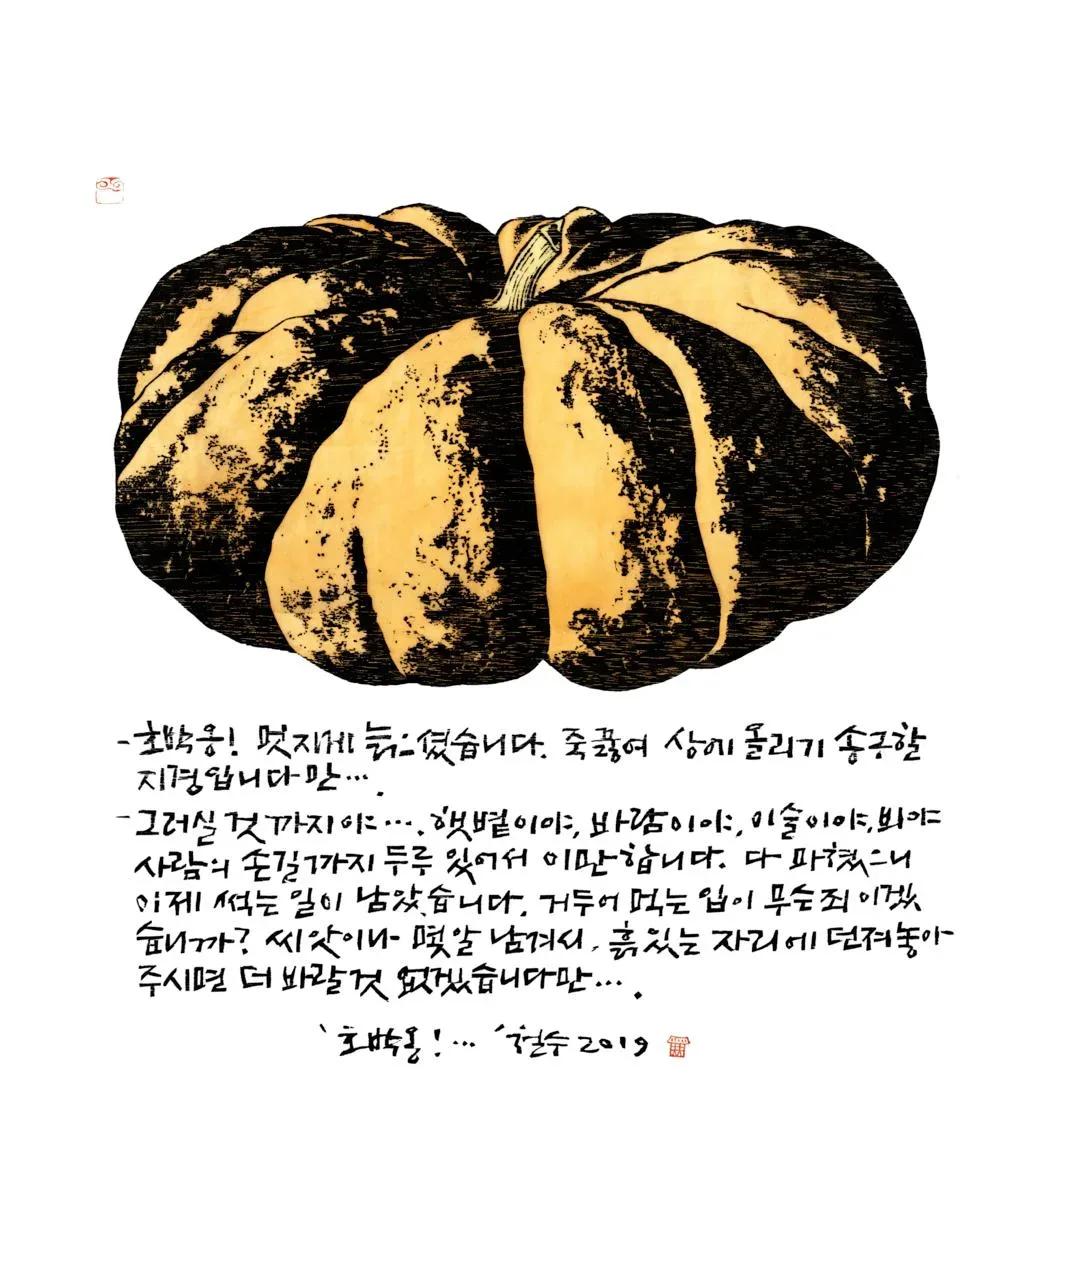 - 호박옹! 멋지게 늙으셨습니다. 죽끓여 상에 올리기 송구할
지경입니다만….
- 그러실 것 까지야…. 햇볕이야, 바람이야, 이슬이야, 봐야
사람의 손길까지 두루 있어서 이만합니다. 다 파했으니
이제 썩는 일이 남았습니다. 거두어 먹는 입이 무슨죄이겠
습니까? 씨앗이나 몇알 남겨서, 흙있는 자리에 던져놓아
주시면 더 바랄것 없겠습니다만….
'호박옹!…' 철수 2019